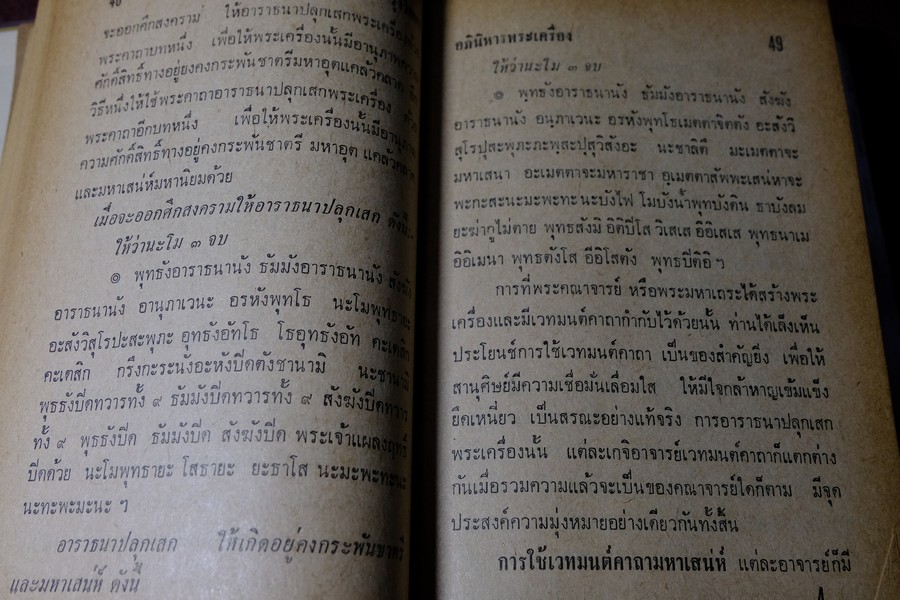 48
จะออกศึกสงคราม ให้อาราธนาปลุกเสกพระเครื่อง
พระคาถาบทหนึ่ง เพื่อให้พระเครื่องนั้นมีอานุภาพ
ศักดิ์สิทธิ์ทางอยู่ยงคงกระพันชาตรีมหาอุตแคล้วคลาด
วิธีหนึ่งให้ใช้พระคาถาอาราธนาปลุกเสกพระเครื่อง
พระคาถาอีกบทหนึ่ง เพื่อให้พระเครื่องนั้นมีอานุภาพ
ความศักดิ์สิทธิ์ทางอยู่คงกระพันชาตรี มหาอุต แคล้วคลาด
และมหาเสน่ห์มหานิยมด้วย
เมื่อจะออกศึกสงครามให้อาราธนาปลุกเสก ดังนี้
ให้ว่านะโม ๓ จบ
๏ พุทธังอาราธนานัง ธัมมังอาราธนานัง สังฆัง
อาราธนานัง อานุภาเวนะ อรหังพุทโธ นะโมพุทธายะ
อะสังวิสุโรปะสะพุภะ อุทธังอัทโธ โธอุทธังอัท คะเตสิก
คะเตสิก กรึงกะระนังอะหังปิดตังชานามิ นะชานามิ
พุธธังปิดทวารทั้ง ๙ ธัมมังปิดทวารทั้ง ๙ สังฆังปิดทวาร
ทั้ง ๙ พุธธังปิด ธัมมังปิด สังฆังปิด พระเจ้าแผลงฤทธิ์
ปิดด้วย นะโมพุทธายะ โสธายะ ยะธาโส นะมะพะทะนะ
นะทะพะมะนะ ฯ
อาราธนาปลุกเสก ให้เกิดอยู่คงกระพันชาตรี
และมหาเสน่ห์ ดังนี้
อภินิหารพระเครื่อง 49
ให้ว่านะโม ๓ จบ
๏ พุทธังอาราธนานัง ธัมมังอาราธนานัง สังฆัง
อาราธนานัง อนุภาเวนะ อรหังพุทโธเมตตาจิตตัง อะสังวิ
สุโรปุสะพุภะภะพุสะปุสุวิสังอะ นะชาลิตี มะเมตตาจะ
มหาเสนา อะเมตตาจะมหาราชา อุเมตตาสัพพะเสน่หาจะ
พะกะสะนะมะพะทะ นะบังไฟ โมบังน้ำพุทบังดิน ธาบังลม
ยะฆ่ากูไม่ตาย พุทธสังมิ อิติปิโส วิเสเส อิอิเสเส พุทธนาเม
อิอิเมนา พุทธตังโส อิอิโสตัง พุทธปิติอิ ฯ
การที่พระคณาจารย์ หรือพระมหาเถระได้สร้างพระ
เครื่องและมีเวทมนต์คาถากำกับไว้ด้วยนั้น ท่านได้เล็งเห็น
ประโยชน์การใช้เวทมนต์คาถา เป็นของสำคัญยิ่ง เพื่อให้
สานุศิษย์มีความเชื่อมั่นเลื่อมใส ให้มีใจกล้าหาญเข้มแข็ง
ยึดเหนี่ยว เป็นสรณะอย่างแท้จริง การอาราธนาปลุกเสก
พระเครื่องนั้น แต่ละเกจิอาจารย์เวทมนต์คาถาก็แตกต่าง
กันเมื่อรวมความแล้วจะเป็นของคณาจารย์ใดก็ตาม มีจุด
ประสงค์ความมุ่งหมายอย่างเดียวกันทั้งสิ้น
การใช้เวทมนต์คาถามหาเสน่ห์ แต่ละอาจารย์ก็มี